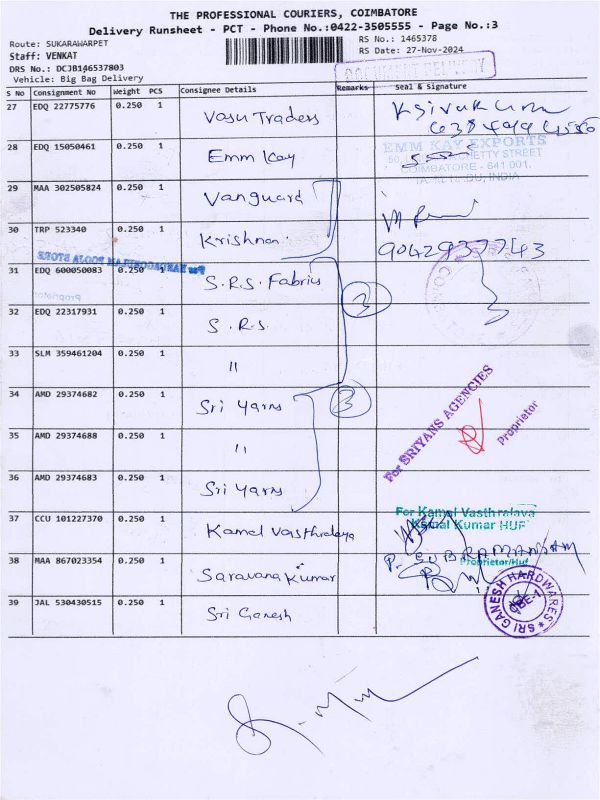 THE PROFESSIONAL COURIERS, COIMBATORE
Delivery Runsheet - PCT - Phone No.:0422-3505555 - Page No.:3
Route: SUKARAWARPET
RS No.: 1465378
Staff: VENKAT
RS Date: 27-Nov-2024
DRS No.: DCJB146537803
Vehicle: Big Bag Delivery
DOCUMENT DELIVERY
S No Consignment No Weight PCS Consignee Details Remarks Seal & Signature
27 EDQ 22775776 0.250 1 Vasu Traders
28 EDQ 15050461 0.250 1 Emm Kay
EMM KAY EXPORTS
COIMBATORE - 641 001.
29 MAA 302505824 0.250 1 Vanguard
30 TRP 523340 0.250 1 Krishna
31 EDQ 600050083 0.250 1 S.R.S. Fabrics
Proprietor
32 EDQ 22317931 0.250 1 S.R.S.
33 SLM 359461204 0.250 1 "
34 AMD 29374682 0.250 1 Sri Yarns
3
35 AMD 29374688 0.250 1 "
For SRIYANS AGENCIES
Proprietor
36 AMD 29374683 0.250 1 Sri Yarns
37 CCU 101227370 0.250 1 Kamal Vasthralaya
For Kamal Vasthralaya
Kamal Kumar HUF
P. SUBRAMANIAM
Proprietor/Huf
38 MAA 867023354 0.250 1 Saravana Kumar
39 JAL 530430515 0.250 1 Sri Ganesh
SRI GANESH HARDWARES
CBE-1